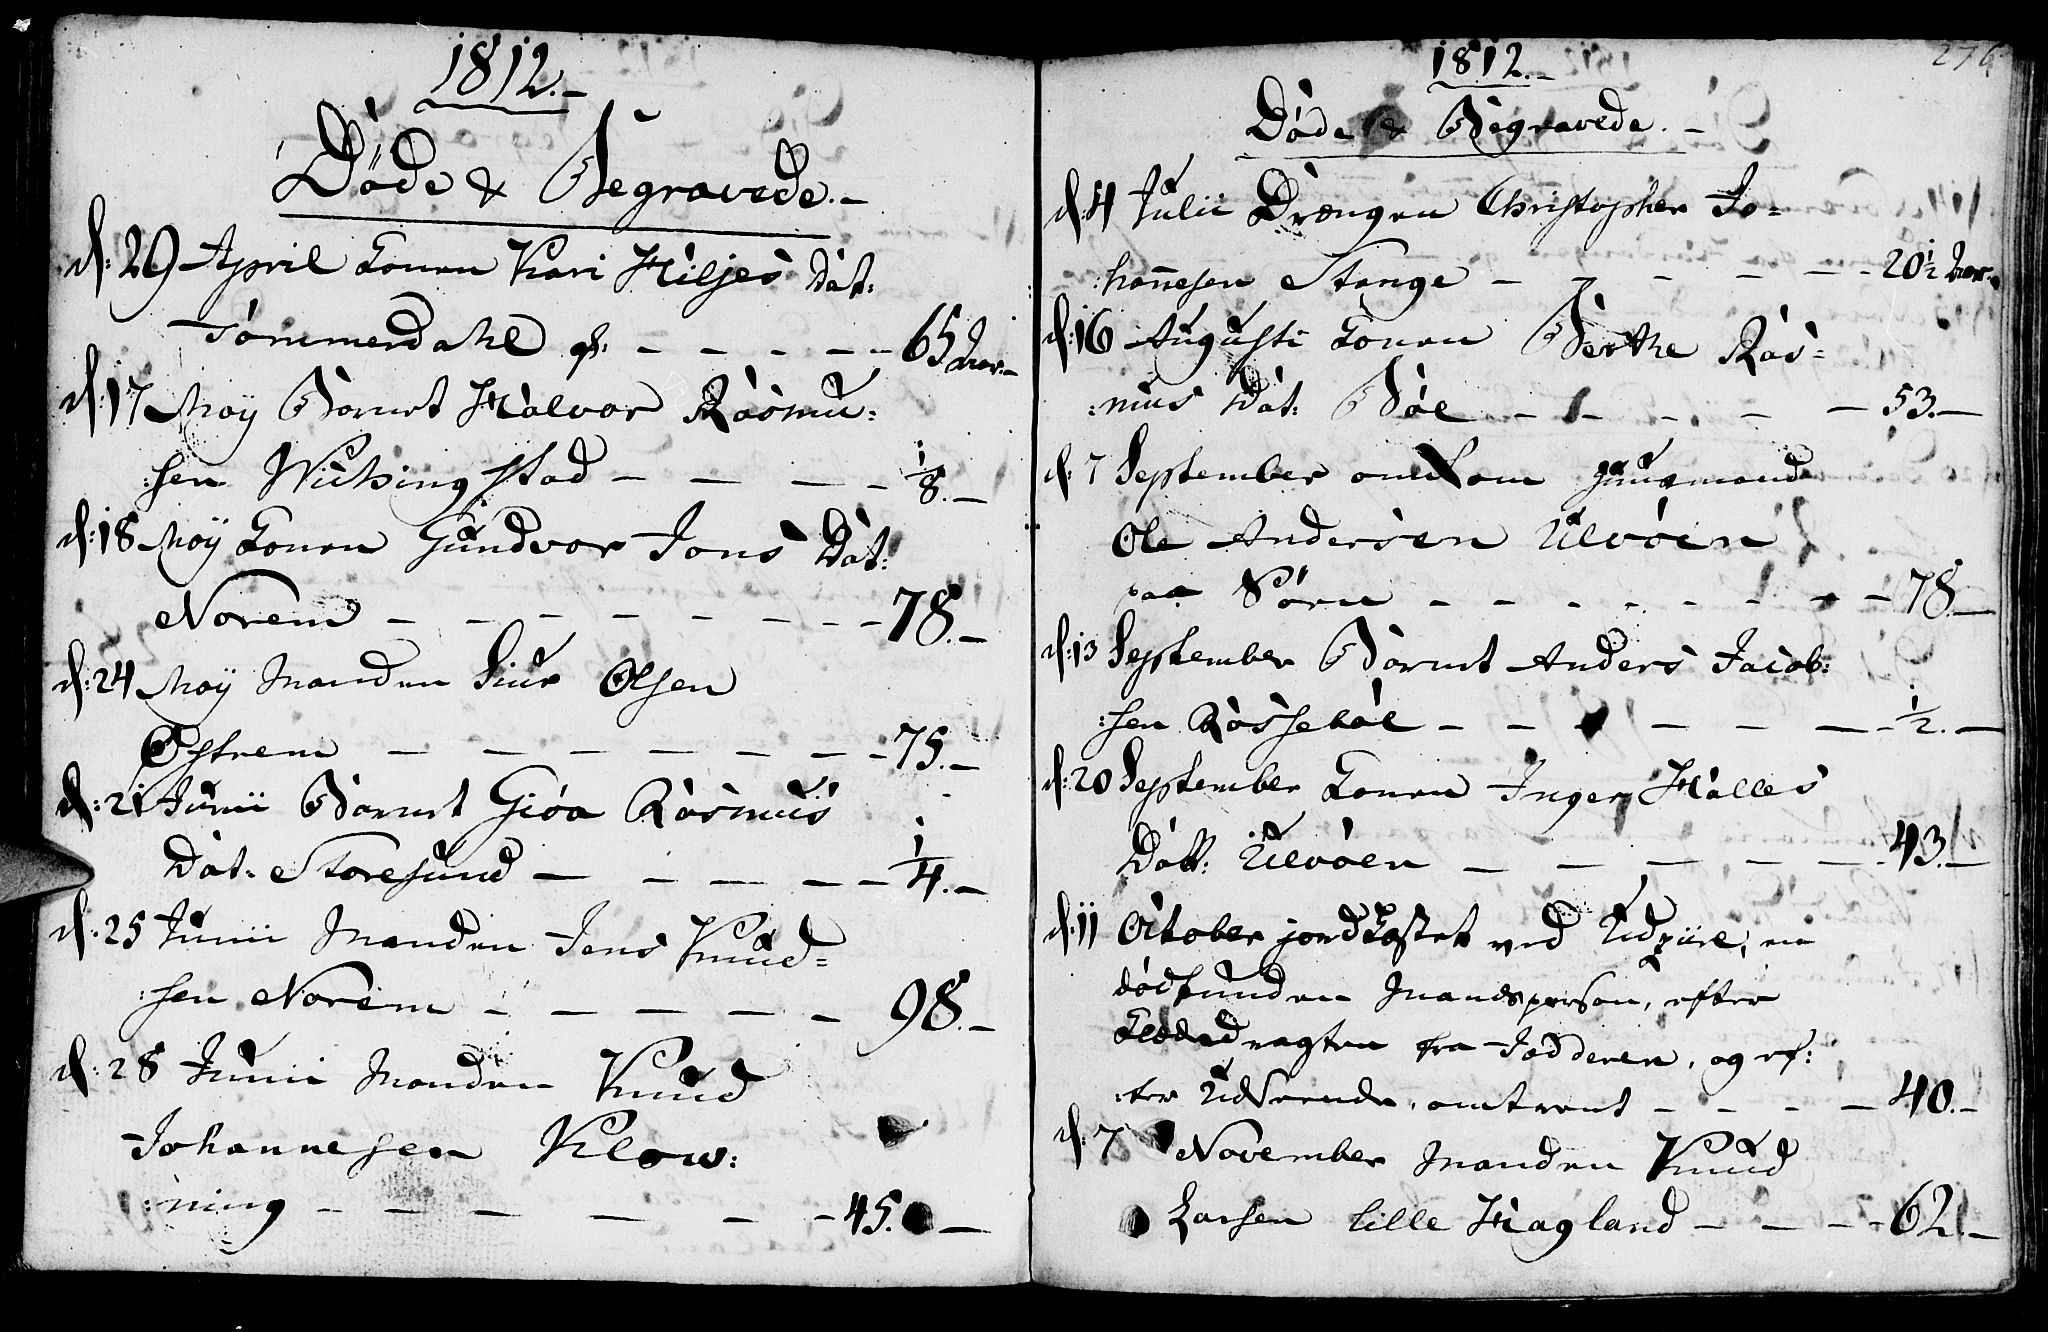 1812.-
Døde & Begravede.-
d: 29 April Konen Kari Hiljes Dat:
Tømmerdahl - - - - - 65 Aar.-
d: 17 Maÿ Barnet Halvor Rasmu:
:sen Wichingstad - - - - 1/8.-
d: 18 Maÿ Konen Gundvor Jons Dat:
Norem - - - - - - - - 78.-
d: 24 Maÿ Manden Siur Olsen
Østrem - - - - - - - 75.-
d: 21 Junii Barnet Giøa Rasmus
Dat: Storesund - - - - - 1/4.-
d: 25 Junii Manden Jens Knud=
:sen Norem - - - - - - 98.-
d: 28 Junii Manden Knud
Johannesen Klow:
:ning - - - - - - 45.-
1812.-
276
Døde & Begravede.-
d: 4 Julii Drængen Christopher Jo=
:hannesen Stange - - - - - 20 1/2 Aar.-
d: 16 Augusti Konen Berthe Ras=
:mus Dat: Bøe - - - - - 53.-
d: 7 September omkom Huusmand
Ole Andersen Udvøen
paa Søen - - - - - - - 78.-
d: 13 September Barnet Anders Jacob:
:sen Røssebøe - - - - - - 1/2.-
d: 20 September Konen Inger Halles
Datt: Udvøen - - - - - 43.-
d: 11 October jordkastet ved Udziire, en
dødfunden Mandsperson, efter
Klædedragten fra Jædderen, og ef:
:ter Udseende, omtrent - - - - 40.-
d: 7 November Manden Knud
Larsen lille Hagland - - - - 62.-